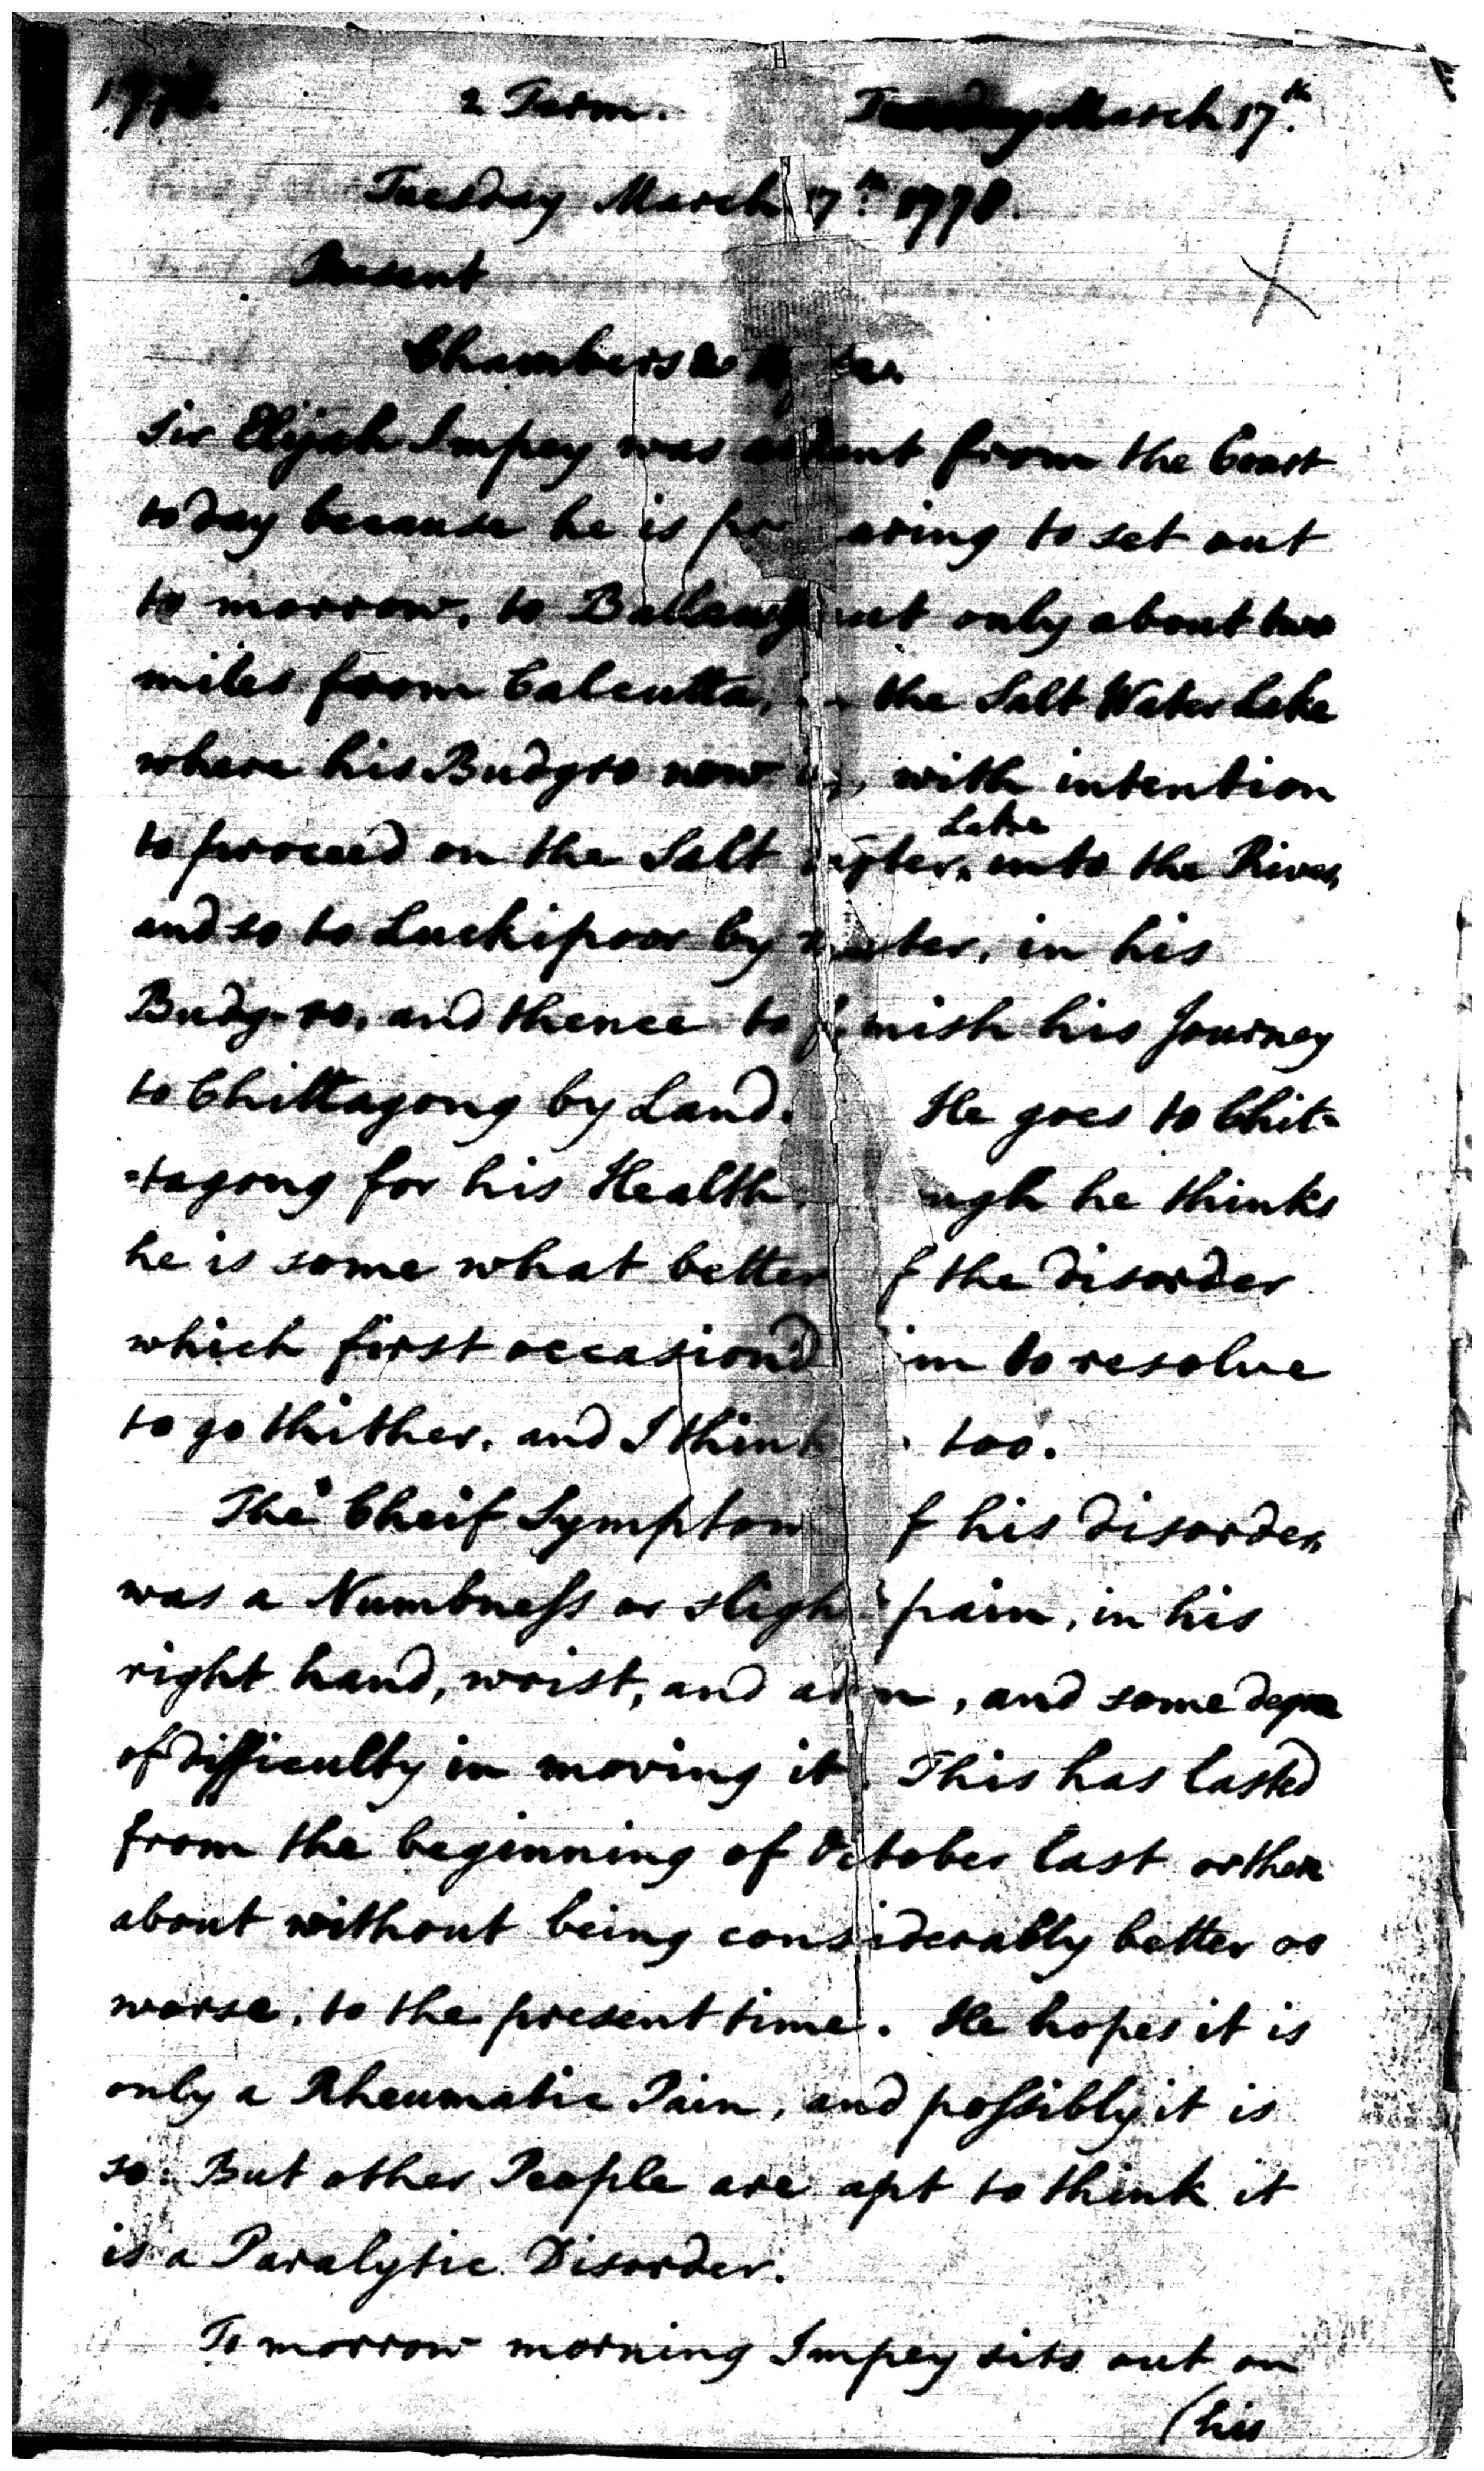 1778. 2 Term. Tuesday March 17.th
Tuesday March 17.th 1778.
Present
Chambers &
Sir Elijah Impey was absent from the Court
today because he is pr aring to set out
to morrow, to only about two
miles from Calcutta, the Salt Water Lake
where his Budgro now is, with intention
Lake
to proceed on the Salt water, into the River,
and so to Luckipoor by water, in his
Budg-ro, and thence to finish his Journey
to Chittagong by Land. He goes to Chit=
=tagong for his Health, ugh he thinks
he is some what better f the disorder
which first occasion'd im to resolve
to go thither, and I think too.
The Cheif Symptom f his disorder,
was a Numbness or slight pain, in his
right hand, wrist, and arm, and some degree
of difficulty in moving it. This has lasted
from the beginning of October last or there
about without being considerably better or
worse, to the present time. He hopes it is
only a Rheumatic Pain, and possibly it is
so. But other People are apt to think it
is a Paralytic Disorder.
To morrow morning Impey sets out on
(his